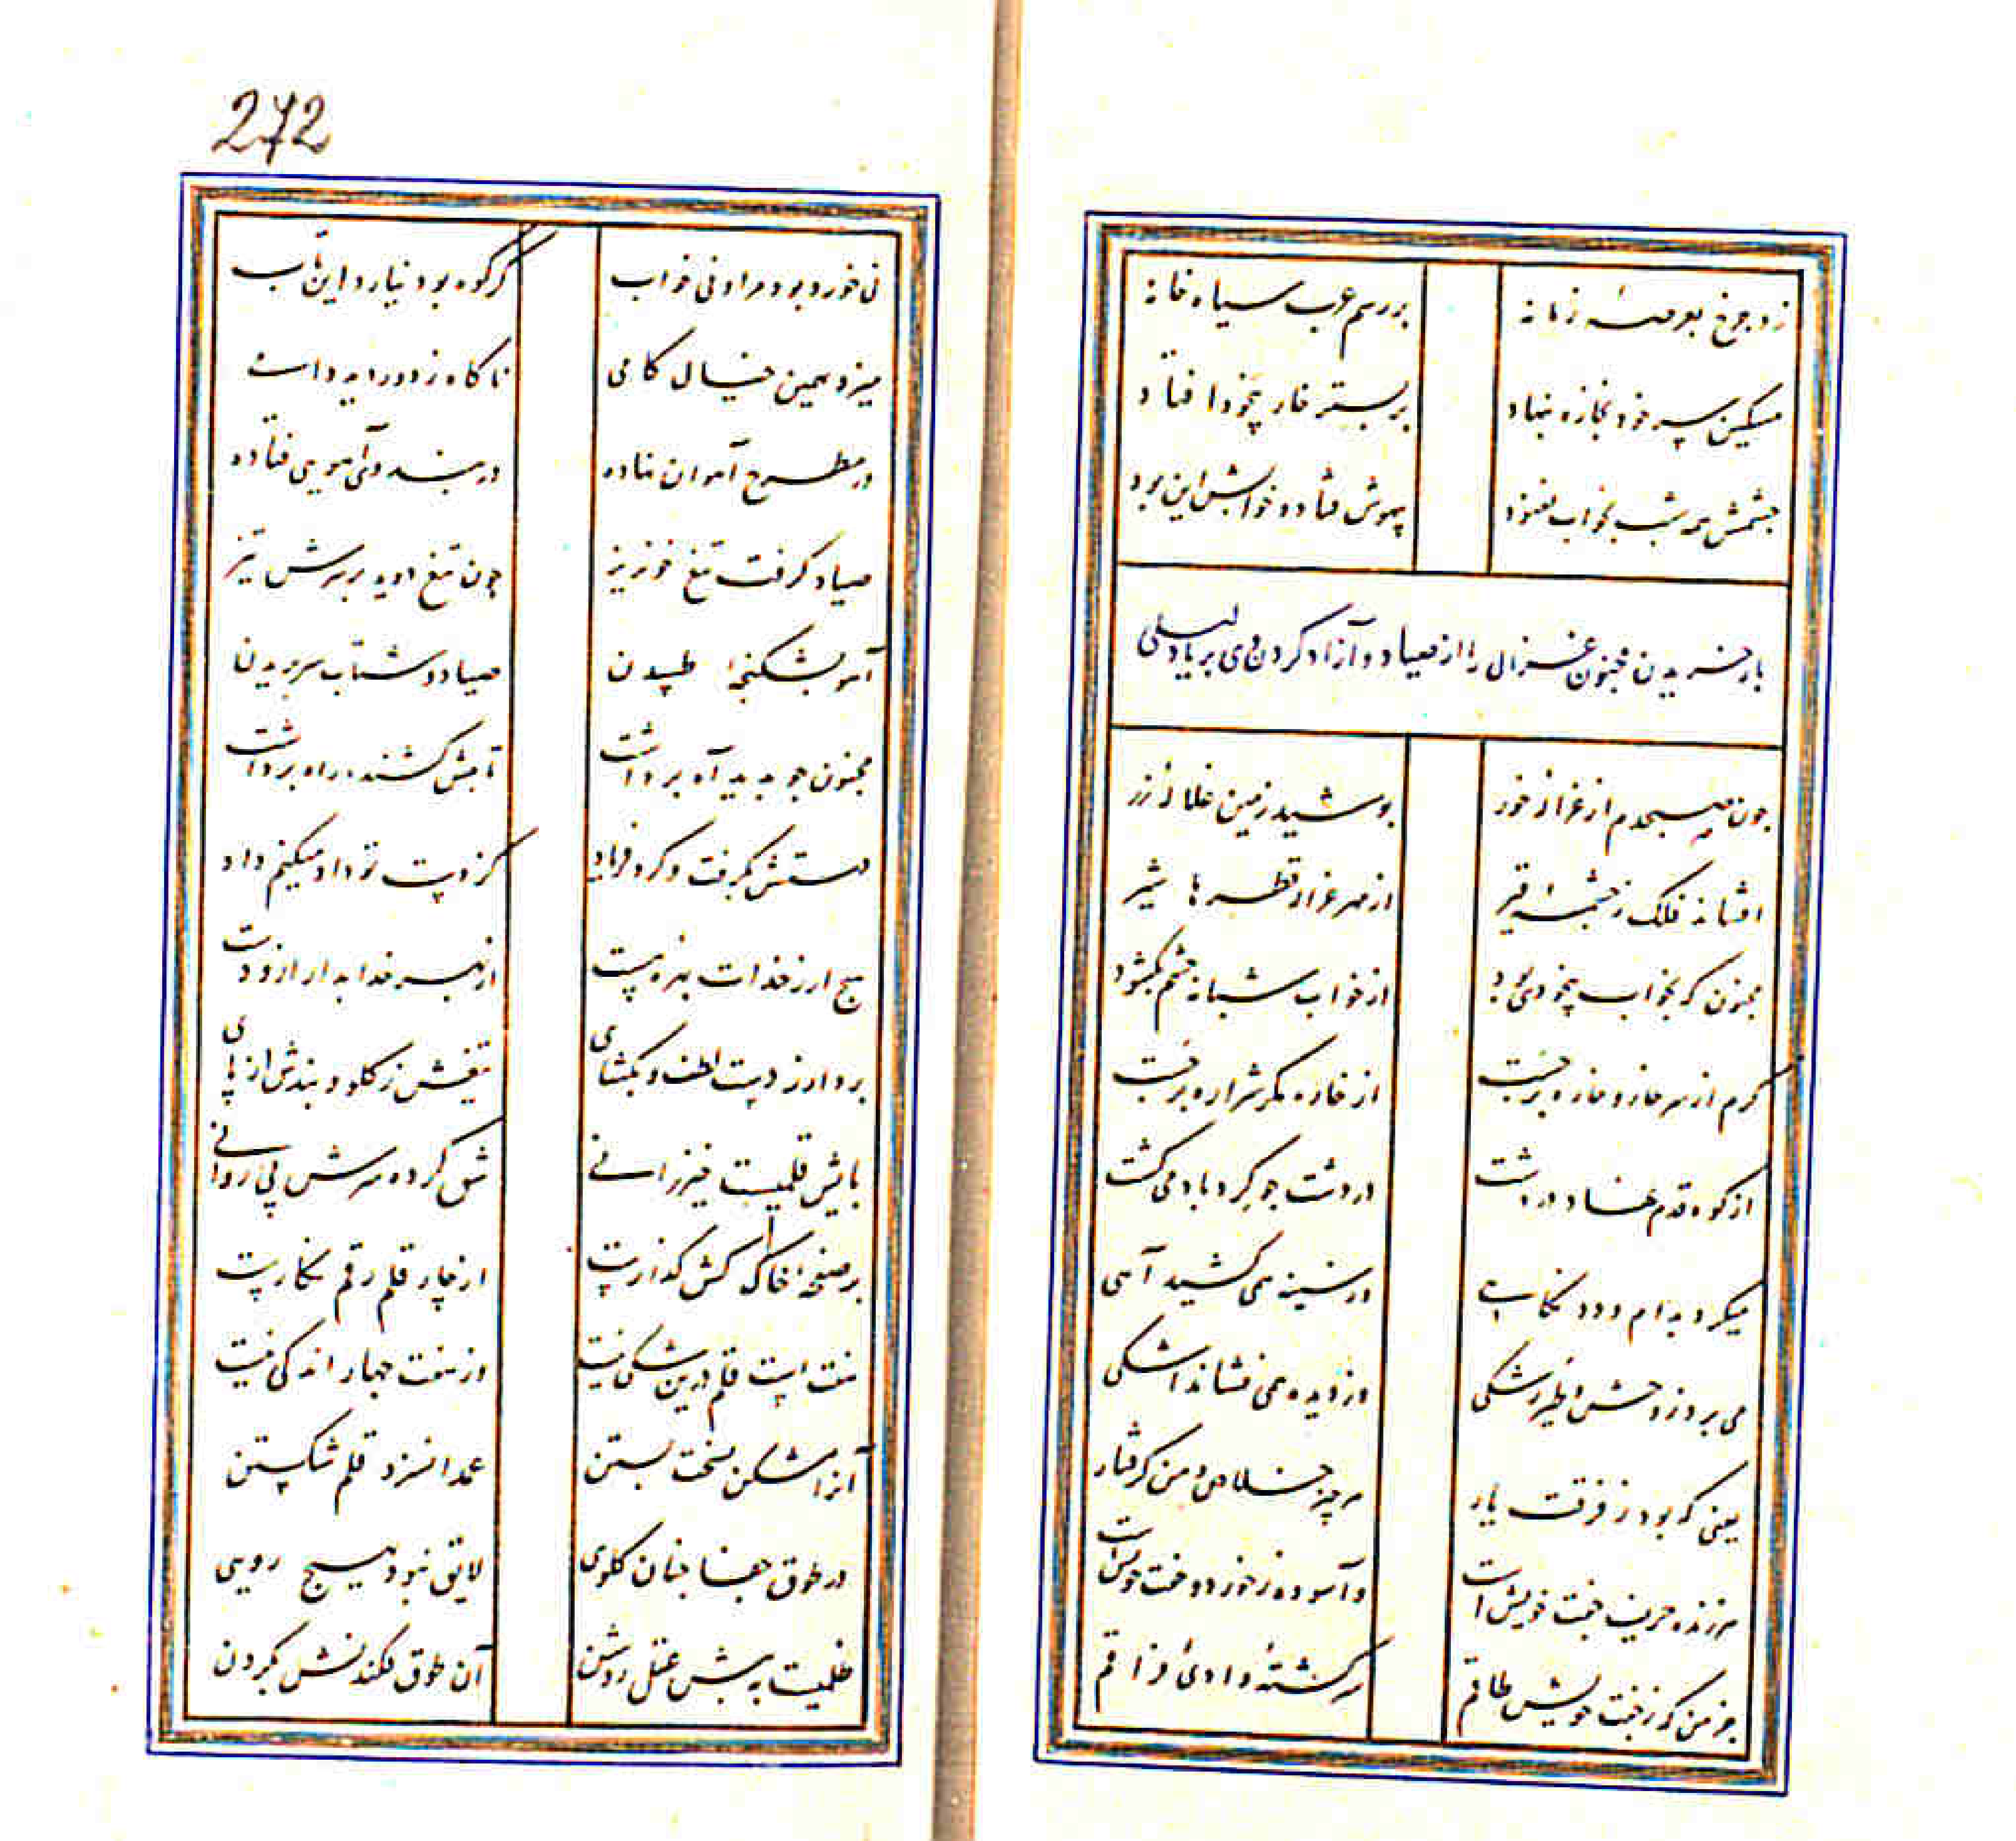 زد چرخ بعرصهٔ زمانه بر رسم عرب سیاه خانه
مسکین سر خود بخاره بنهاد بر بستر خار بیخود افتاد
چشمش همه شب بخواب نغنود بیهوش فتاده خوابش این بود
باز خریدن مجنون غزالی را از صیاد و آزاد کردن وی بر یاد لیلی
چون صبحدم از غزالهٔ خور پوشید زمین غلالهٔ زر
افشاند فلک ز چشمهٔ قیر از مهر غزاله قطره‌ها شیر
مجنون که بخواب بیخودی بود از خواب شبانه چشم بگشود
گرم از سر خار و خاره برجست از خاره مگر شراره برجست
از کوه قدم نهاد در دشت در دشت چو گردباد می گشت
میکرد بدام و دد نگاهی از سینه همی کشید آهی
می برد ز وحش و طیر رشکی وز دیده همی فشاند اشکی
یعنی که بود ز فرقت یار هر چیز خلاص و من گرفتار
هر زنده حریف جفت خویش است و آسوده ز خورد و خفت خویش است
جز من که ز جفت خویش طاقم سرگشتهٔ وادی فراقم
272
نی خورد بود مرا و نی خواب گر کوه بود نیارد این تاب
میزد بهمین خیال گامی ناگاه ز دور دید دامی
در مطرح آهوان نهاده در بند وی آهویی فتاده
صیاد گرفت تیغ خونریز چون تیغ دوید بر سرش تیز
آهو بشکنجهٔ طپیدن صیاد و شتاب سر بریدن
مجنون چو بدید آه برداشت تا پیش کشنده راه برداشت
دستش بگرفت و کرد فریاد کز دست تو داد میکنم داد
هیچ ار ز خدات بهره هست از بهر خدا بدار ازو دست
بردار ز دست لطف و بگشای تیغش ز گلو و بندش از پای
پایش قلمیست خیزرانی شق کرده سرش پی روانی
بر صفحهٔ خاک کش گذارست از چار قلم رقم نگارست
هفت است قلم درین شکی نیست وز هفت چهار اندکی نیست
آنرا مشکن بسخت بستن عمدا نسزد قلم شکستن
در طوق جفا چنان گلوی لایق نبود بهیچ رویی
ظلمیست به پیش عقل روشن آن طوق فکندنش بگردن